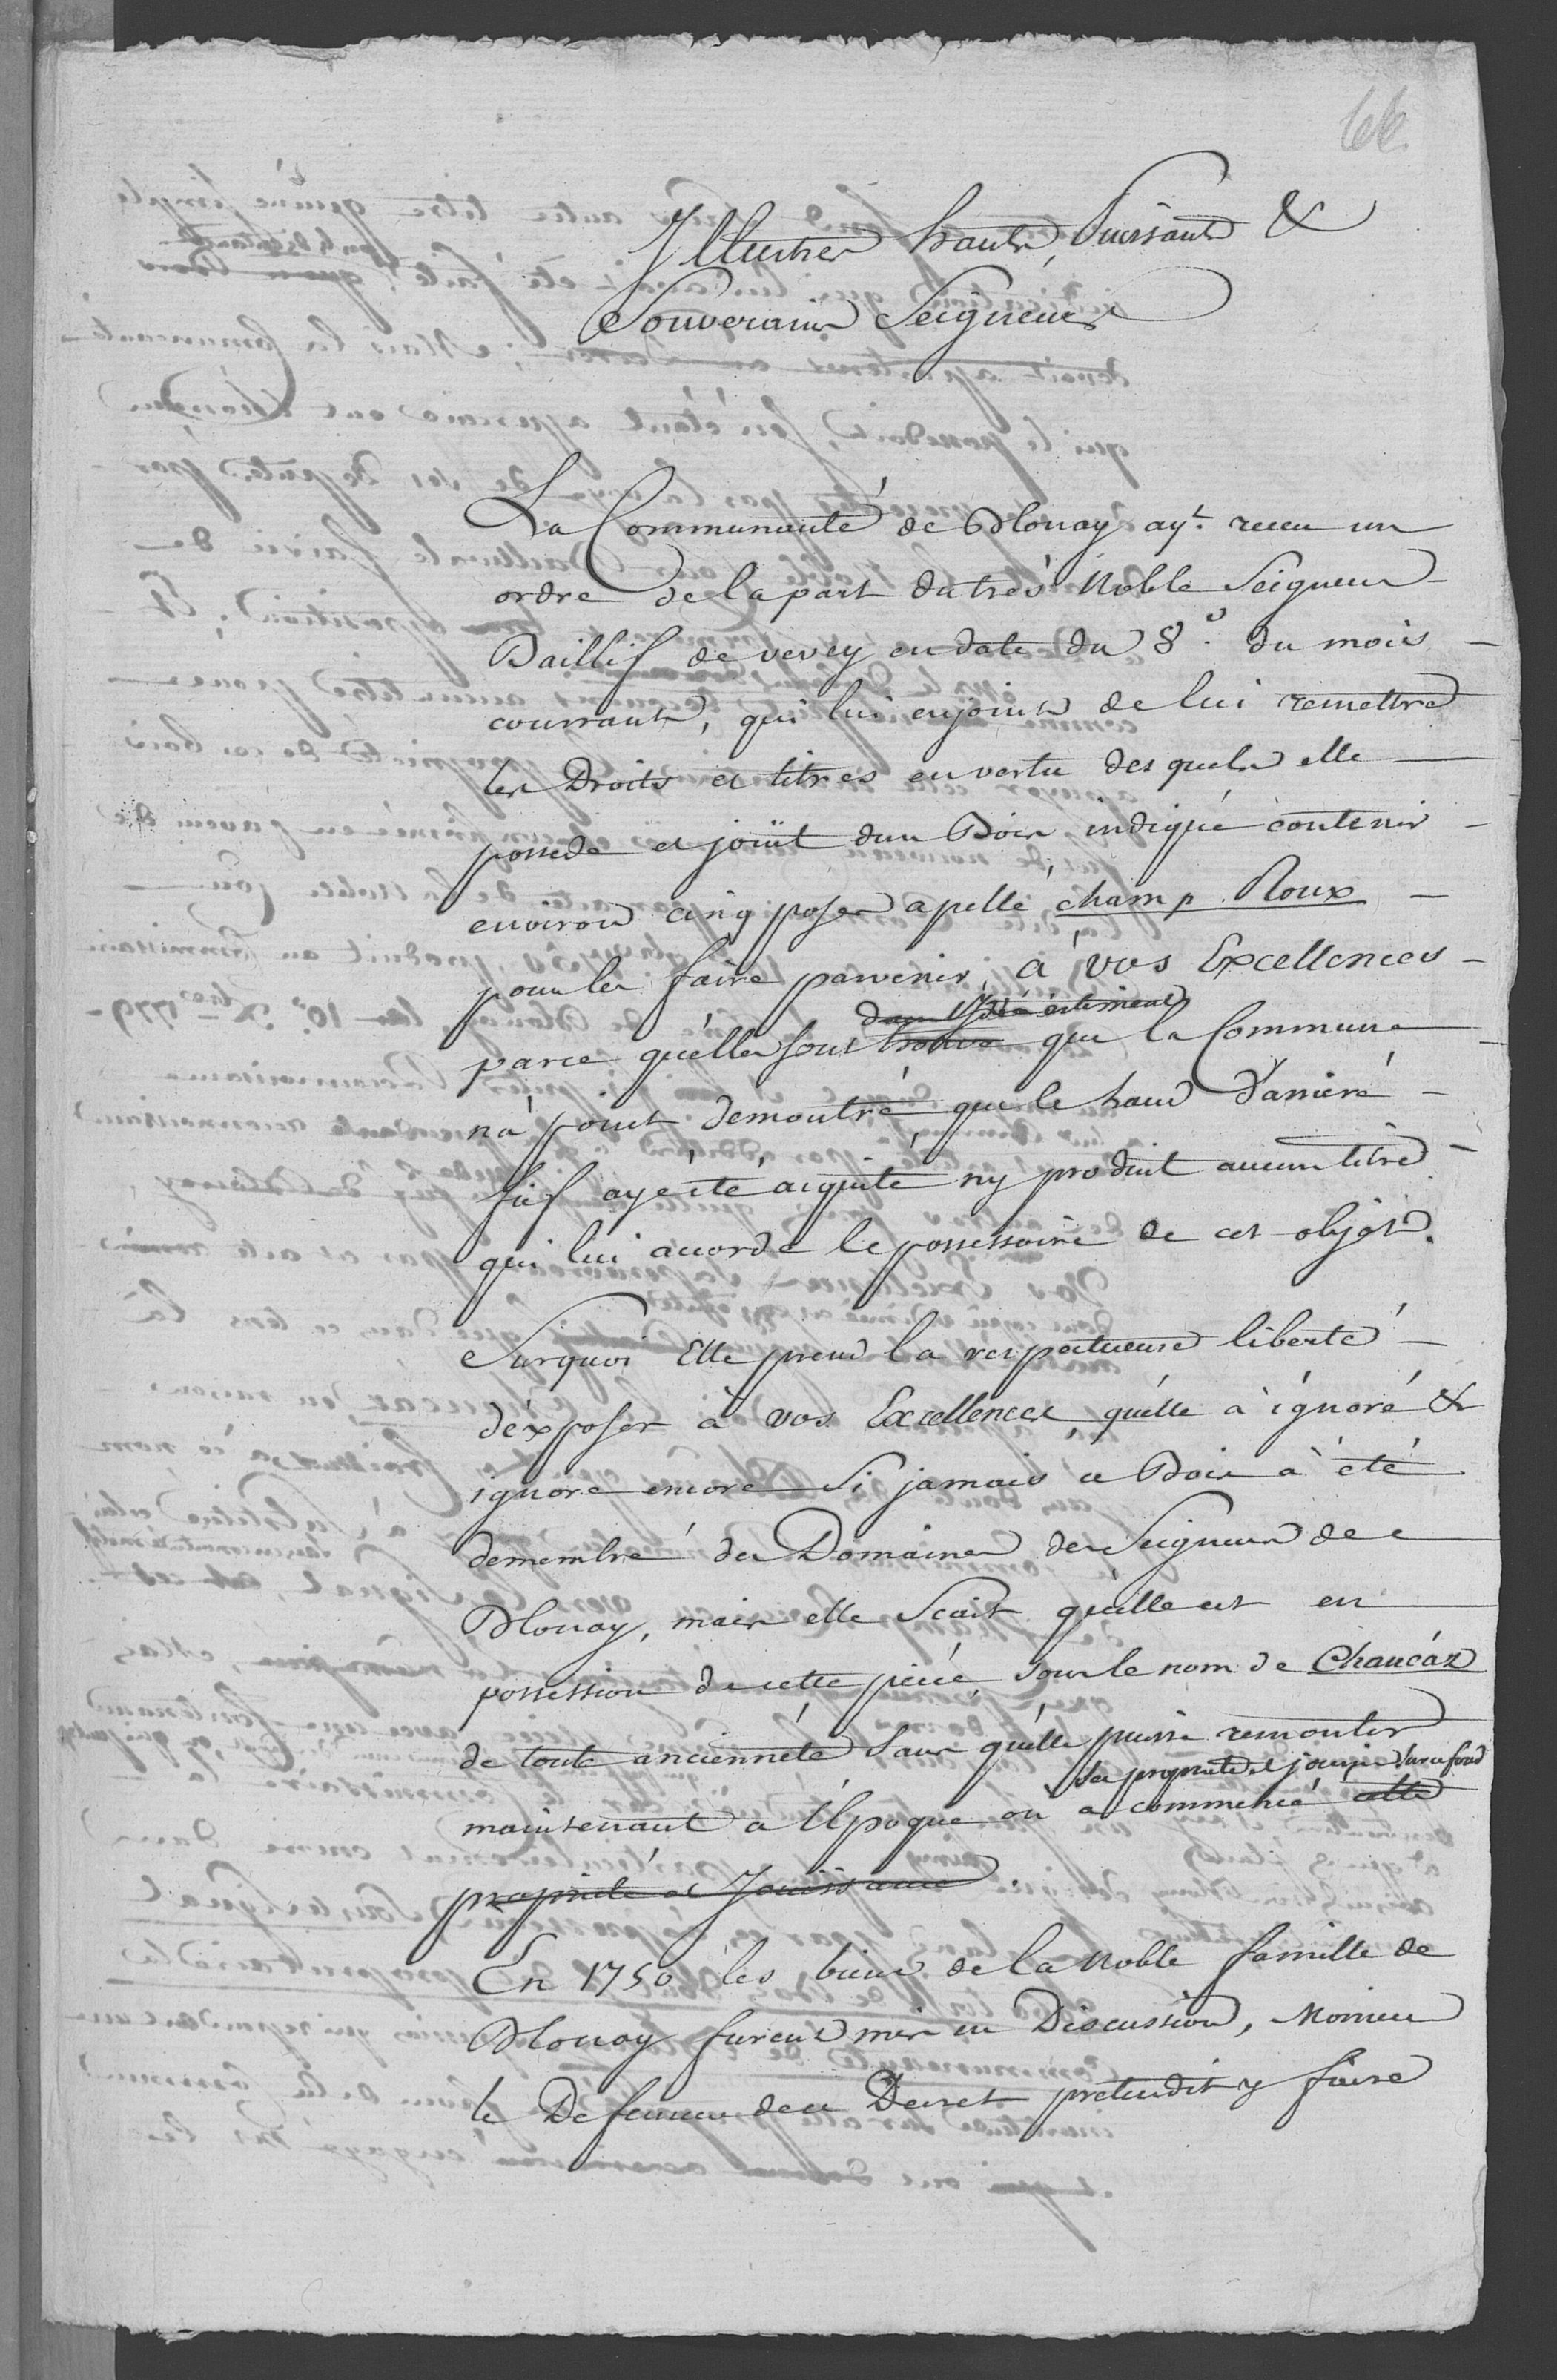 66.
Illustres hauts, Puissants &
Souverains Seigneurs
La Communauté de Blonay ayt. receu un
ordre de la part du trés Noble Seigneur
Baillif de vevey en date du 8e. du mois
courrant, qui lui enjoint de lui remettre
les Droits et titres en vertu des quels elle
possede et joüit dun Bois indiqué contenir
environ cinq poses apellé champ Roux
pour les faire parvenir, à vos Excellences
dans l'Idée
parce qu'elles sont que la Commune
n'à point demontré que le haud d'arriére
fief aye été aiquité ny produit aucun titre
qui lui accorde le possessoire de cet objèt.
Surquoi Elle prend la respectueuse liberté
d'exposer à vos Excellences qu'elle à ignoré &
ignore encore Si jamais ce Bois à été
demembré des Domaines des Seigneurs de
Blonay, mais elle Scait qu'elle est en
possession de cette piéce, sous le nom de Chaucáz
de toute ancienneté sans qu'elle puisse remonter
sa proprieté et jouiss sur ce fond
maintenant a l'Epoque où a commencé cette
proprieté et Jouissance.
En 1750 les biens de la Noble famille de
Blonay furent mis en Discussion, Monsieur
le Defenseur de ce Decret pretendit y faire